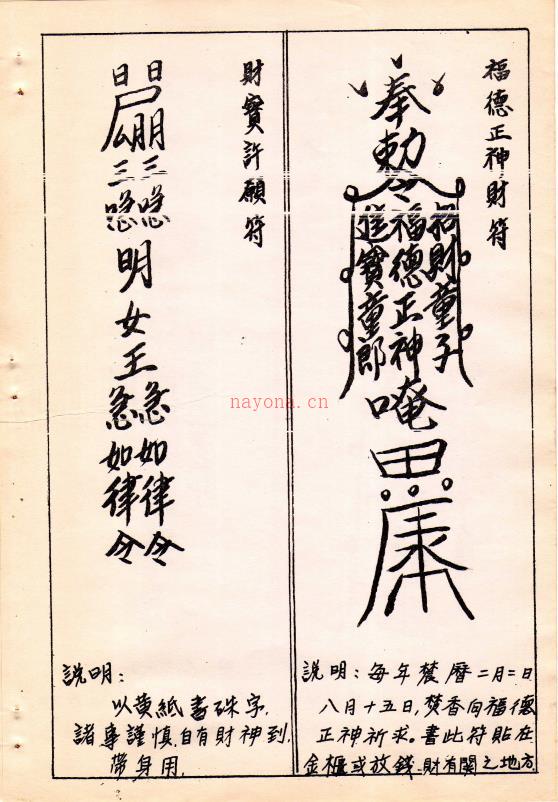 福德正神財符
奉勅令
招財童子
福德正神
進寶童郎
唵
說明：每年農曆二月二日
八月十五日，焚香向福德
正神祈求。書此符貼在
金櫃或放錢財有関之地方
財寶許願符
日日
明女王
急如律令
急如律令
說明：
以黃紙書硃字，
諸事謹慎，自有財神到，
帶身用，
nayona.cn